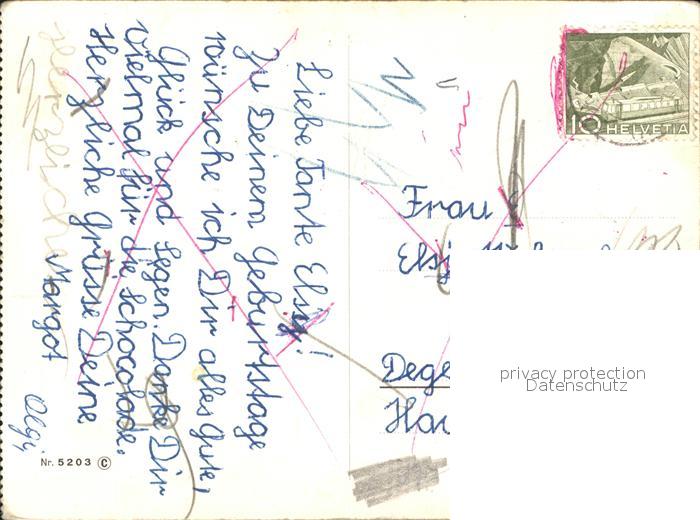 Liebe Tante Elsy!
Zu Deinem Geburtstage
wünsche ich Dir alles Gute,
Glück und Segen. Danke Dir
vielmal für die Schocolade.
Herzliche Grüsse Deine
Margot
Olgi
herzlich
Nr. 5203 ©
10 HELVETIA
Frau
Elsy
Dege
Hau
privacy protection
Datenschutz